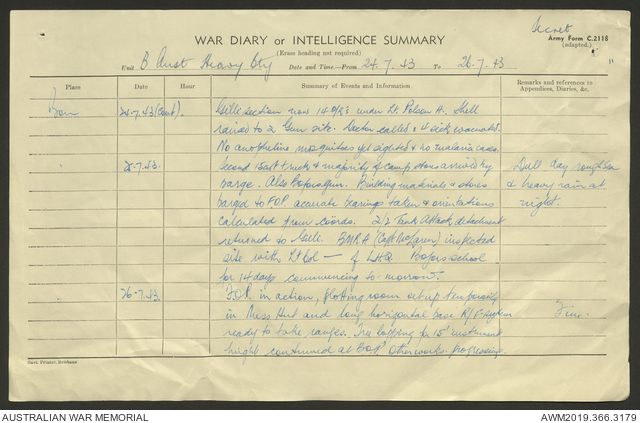 Secret
WAR DIARY or INTELLIGENCE SUMMARY
Army Form C.2118
(adapted.)
(Erase heading not required)
Unit B Aust Heavy Bty Date and Time.—From 24.7.43 To 26.7.43
Place Date Hour Summary of Events and Information Remarks and references to Appendices, Diaries, &c.
24.7.43 (Cont). Gilli section now 14 O/Rs under Lt. A. Shell
raised to 2 Gun site. Doctor called & 4 sick evacuated.
No anopheline mosquitoes yet sighted & no malaria cases.
" 25.7.43. Second 15cwt truck & majority of camp stores arrived by Dull day rough sea
barge. Also Bofors gun. Building materials & stores & heavy rain at
barged to F.O.P. accurate bearings taken & orientations night.
calculated from coords. 2/2 Tank Attack detachment
returned to Gilli. BMRA (Capt McLaren) inspected
site with Lt Col — of LHQ Bofors school
for 14 days commencing to-morrow.
" 26.7.43. F.O.P. in action, plotting room set up temporarily
in Mess Hut and long horizontal base R/F system Fine.
ready to take ranges. Tree lopping for 15' instrument
height continued at B.O.P. Other works progressing.
Govt. Printer, Brisbane
AUSTRALIAN WAR MEMORIAL
AWM2019.366.3179